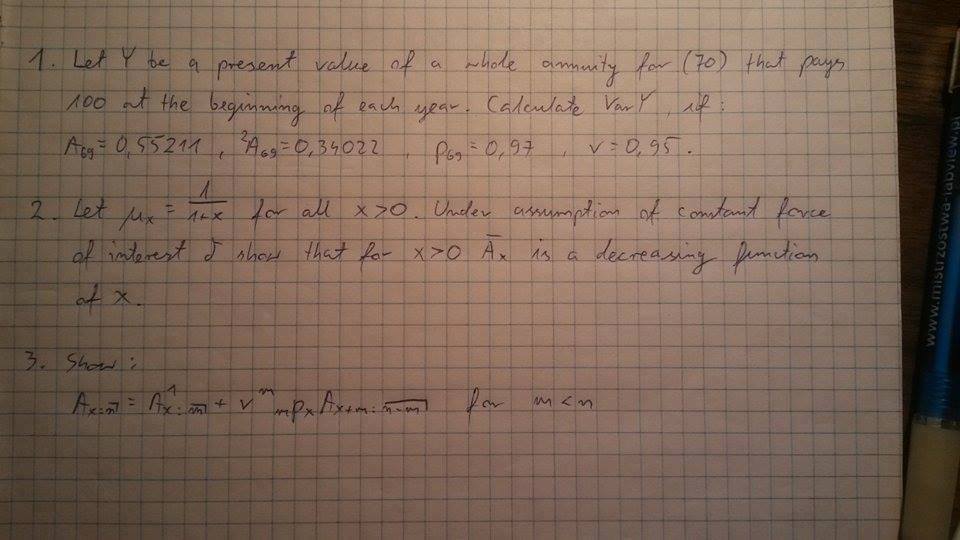 1. Let Y be a present value of a whole annuity for (70) that pays
100 at the beginning of each year. Calculate Var Y, if:
A₆₉ = 0,55211 , ²A₆₉ = 0,34022 , p₆₉ = 0,97 , v = 0,95.
2. Let μₓ = 1/(1+x) for all x>0. Under assumption of constant force
of interest δ show that for x>0 Āₓ is a decreasing function
of x.
3. Show:
A_{x:\overline{n}|} = A^1_{x:\overline{m}|} + v^m {}_m p_x A_{x+m:\overline{n-m}|} for m<n
www.mistrzostwa-labview.pl